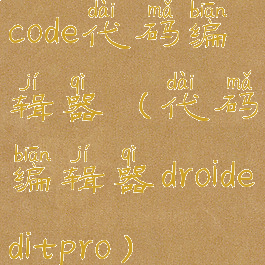 dài mǎ biān
code代码编
jí qì dài mǎ
辑器（代码
biān jí qì
编辑器droide
ditpro）